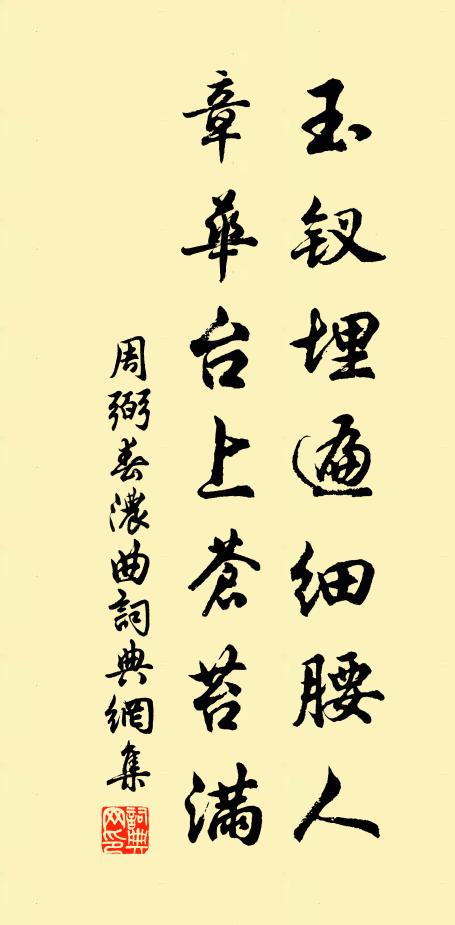 玉钗埋遍细腰人
章華台上蒼苔满
周弼春濃曲詞典網集
詞典网印